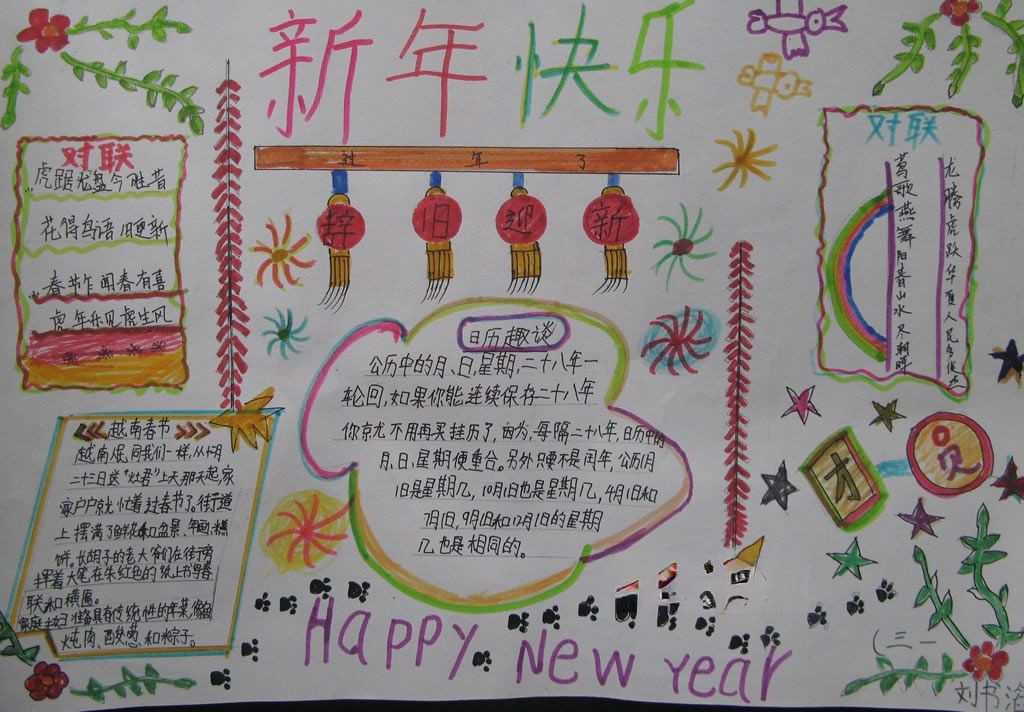 新年快乐
过年了
辞旧迎新
对联
虎踞龙盘今胜昔
花得鸟语旧更新
春节乍闻春有喜
虎年乐见虎生风
对联
龙腾虎跃华夏人民多俊杰
莺歌燕舞阳春山水尽朝晖
日历趣谈
公历中的月、日、星期,二十八年一
轮回,如果你能连续保存二十八年
你就不用再买挂历了,因为,每隔二十八年,日历中的
月、日、星期便重合。另外只要不是闰年,公历1月
1日是星期几,10月1日也是星期几,4月1日和
7月1日,9月1日和12月1日的星期
几也是相同的。
越南春节
越南人民同我们一样,从12月
二十三日送“灶君”上天那天起,家
家户户就忙着过春节了。街道
上摆满了鲜花和盆景、年画、糕
饼。长胡子的老大爷们在街旁
挥着大笔在朱红色的纸上书写春
联和横匾。
家庭妇女准备具有传统性的年菜,像
炖肉、酸葱和粽子。
才
贝
Happy New Year
(三一
刘书洺